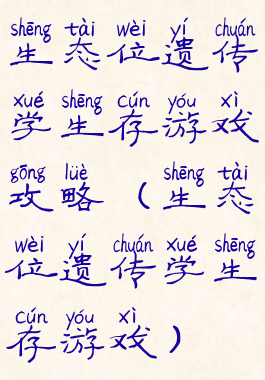 shēng tài wèi yí chuán
生态位遗传
xué shēng cún yóu xì
学生存游戏
gōng lüè shēng tài
攻略（生态
wèi yí chuán xué shēng
位遗传学生
cún yóu xì
存游戏）